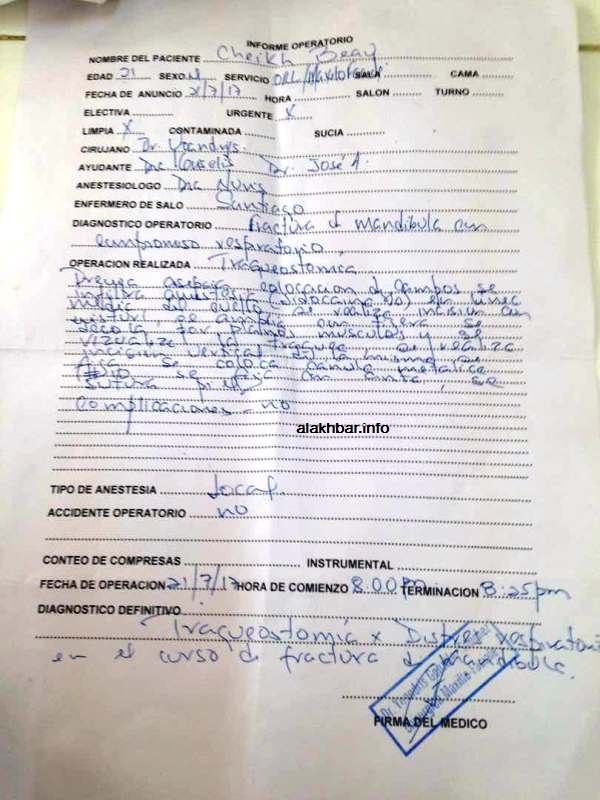 INFORME OPERATORIO
NOMBRE DEL PACIENTE Cheikh Beay
EDAD 21 SEXO M SERVICIO ORL/Maxilofacial SALA CAMA
FECHA DE ANUNCIO 21/7/17 HORA SALON TURNO
ELECTIVA URGENTE X
LIMPIA X CONTAMINADA SUCIA
CIRUJANO Dr.
AYUDANTE Dra Dr. José A.
ANESTESIOLOGO Dra Nuris
ENFERMERO DE SALO Santiago
DIAGNOSTICO OPERATORIO Fractura d mandibula con
compromoso respiratorio
OPERACION REALIZADA Traqueostomia
Previa asepsia, colocacion d campos se
infiltra anestesia (lidocaina) en linea
media de cuello, se realiza incision con
bisturi, se amplia con tijera se
decola por planos musculos y se
vizualiza la traquea, se realiza
incision vertical d la misma
se coloca canula metalica
se fija con cinta, se
sutura piel
Complicaciones - no
alakhbar.info
TIPO DE ANESTESIA local.
ACCIDENTE OPERATORIO no
CONTEO DE COMPRESAS INSTRUMENTAL
FECHA DE OPERACION 21/7/17 HORA DE COMIENZO 8:00pm TERMINACION 8:25pm
DIAGNOSTICO DEFINITIVO
Traqueostomia x Distres respiratorio
en el curso de fractura d mandibula.
FIRMA DEL MEDICO